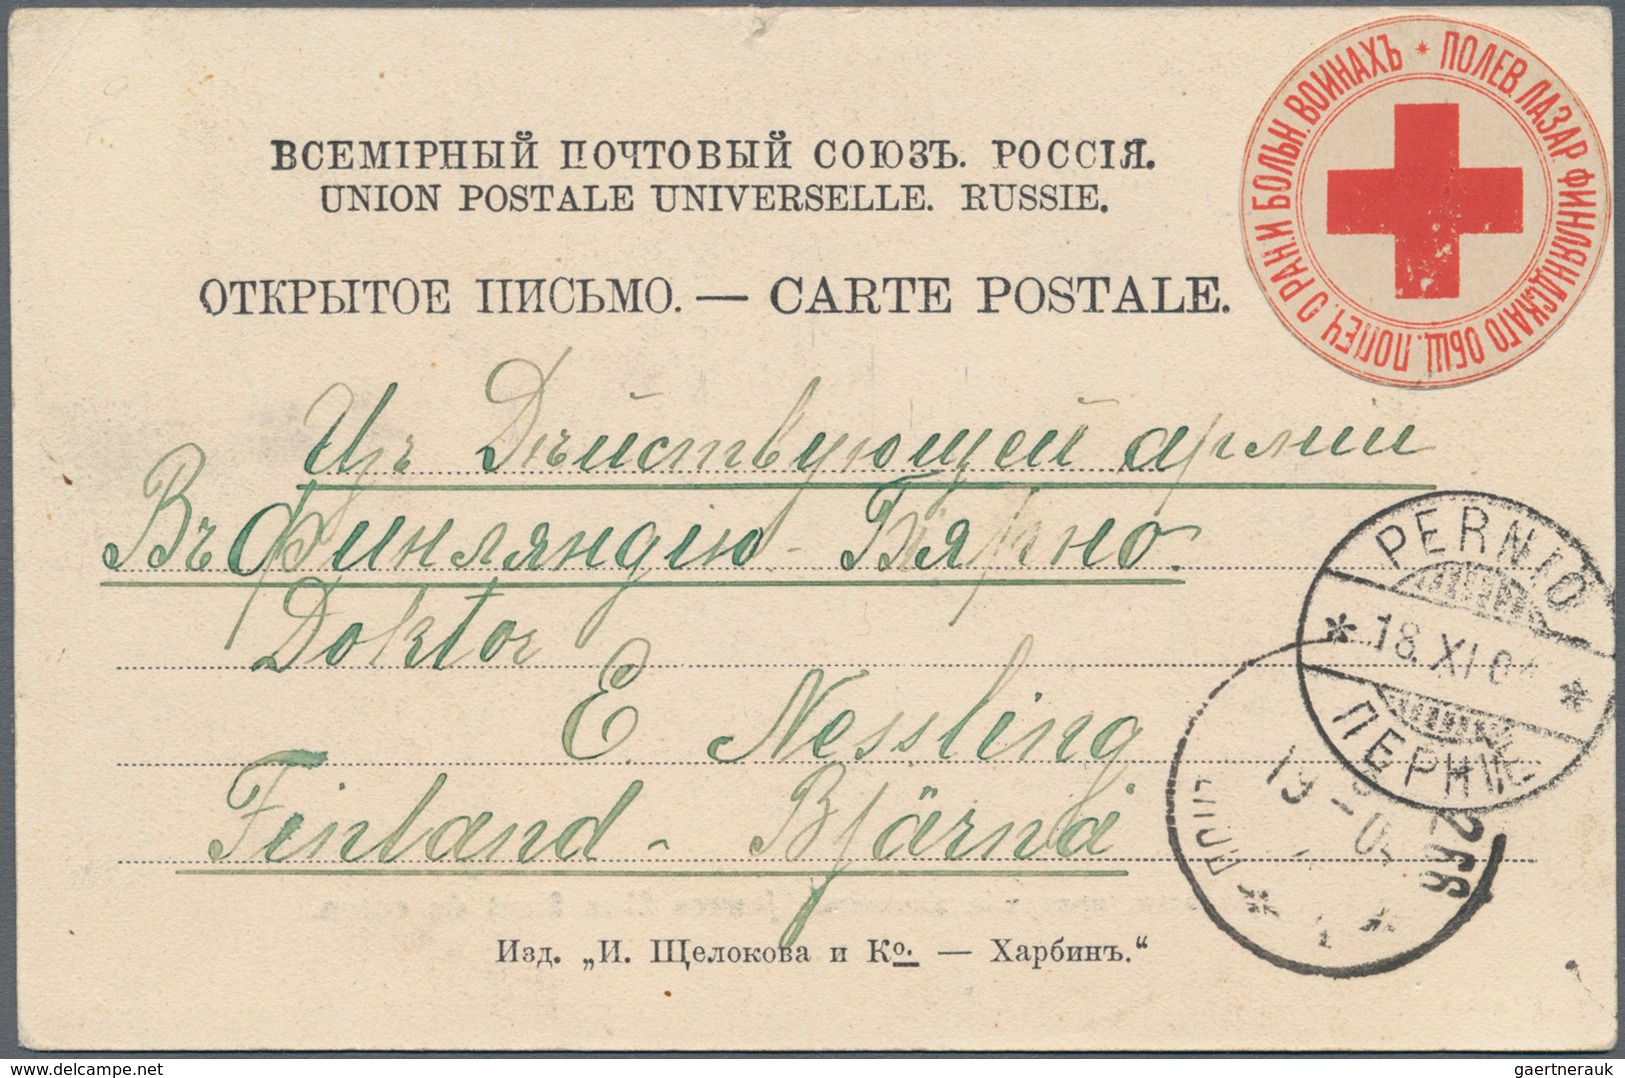 ВСЕМІРНЫЙ ПОЧТОВЫЙ СОЮЗЪ. РОССІЯ.
UNION POSTALE UNIVERSELLE. RUSSIE.
ОТКРЫТОЕ ПИСЬМО. — CARTE POSTALE.
* ПОЛЕВ. ЛАЗАР. ФИНЛЯНДСКАГО ОБЩ. ПОПЕЧ. О РАН. И БОЛЬН. ВОИНАХЪ
Изъ Дѣйствующей арміи
Въ Финляндію - Бярно.
Doktor
E. Nessling
Finland - Bjärnå
PERNIÖ
* 18. XI 04 *
ПЕРНІЕ
19
Изд. „И. Щелокова и Ко. — Харбинъ.“
gaertnerauk